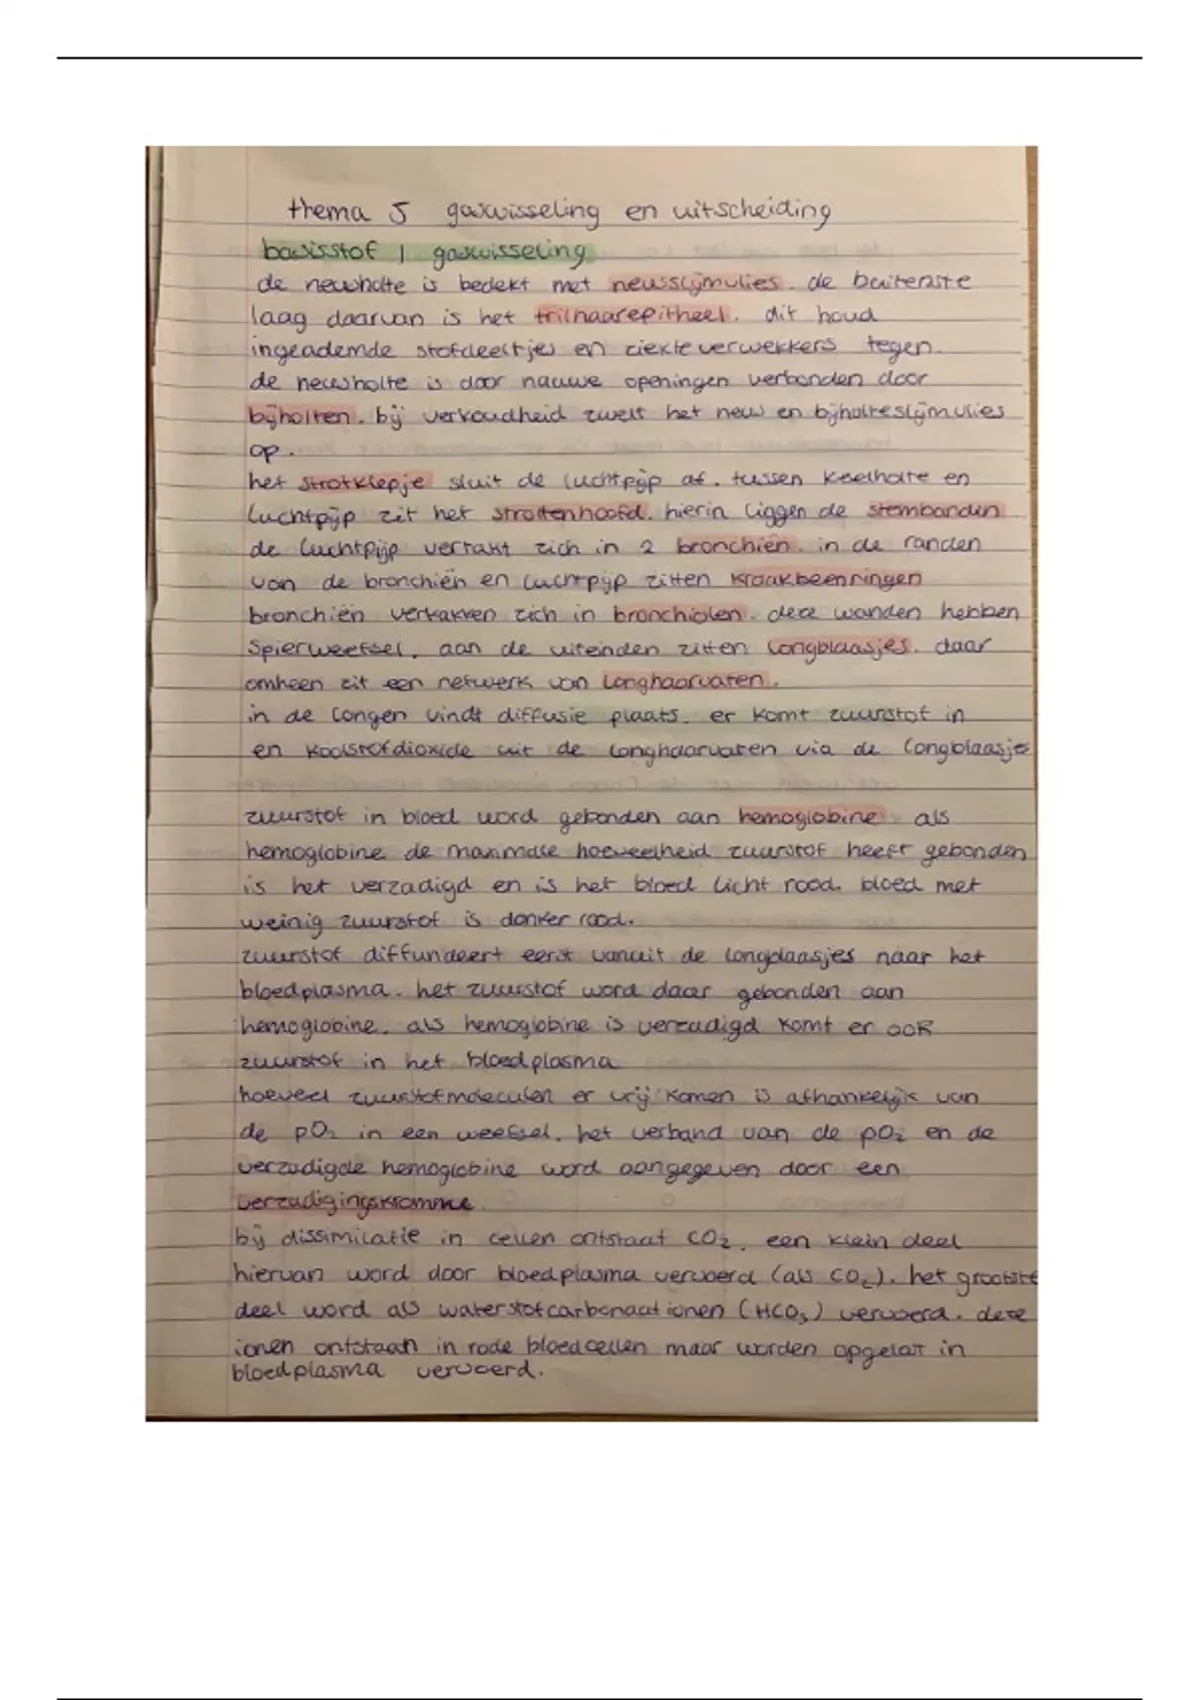 thema 5 gaswisseling en uitscheiding
basisstof 1 gaswisseling
de neusholte is bedekt met neusslijmvlies. de buitenste
laag daarvan is het trilhaarepitheel. dit houd
ingeademde stofdeeltjes en ziekteverwekkers tegen.
de neusholte is door nauwe openingen verbonden door
bijholten. bij verkoudheid zwelt het neus en bijholteslijmvlies
op.
het strotklepje sluit de luchtpijp af. tussen keelholte en
luchtpijp zit het strottenhoofd. hierin liggen de stembanden
de luchtpijp vertakt zich in 2 bronchiën. in de randen
van de bronchiën en luchtpijp zitten kraakbeenringen
bronchiën vertakken zich in bronchiolen. deze wanden hebben
spierweefsel. aan de uiteinden zitten longblaasjes. daar
omheen zit een netwerk van longhaarvaten.
in de longen vindt diffusie plaats. er komt zuurstof in
en koolstofdioxide uit de longhaarvaten via de longblaasje
zuurstof in bloed word gebonden aan hemoglobine. als
hemoglobine de maximale hoeveelheid zuurstof heeft gebonden
is het verzadigd en is het bloed licht rood. bloed met
weinig zuurstof is donker rood.
zuurstof diffundeert eerst vanuit de longblaasjes naar het
bloedplasma. het zuurstof word daar gebonden aan
hemoglobine. als hemoglobine is verzadigd komt er ook
zuurstof in het bloedplasma
hoeveel zuurstofmoleculen er vrij komen is afhankelijk van
de pO₂ in een weefsel. het verband van de pO₂ en de
verzadigde hemoglobine word aangegeven door een
verzadigingskromme.
bij dissimilatie in cellen ontstaat CO₂. een klein deel
hiervan word door bloedplasma vervoerd (als CO₂). het grootste
deel word als waterstofcarbonaationen (HCO₃) vervoerd. deze
ionen ontstaan in rode bloedcellen maar worden opgelost in
bloedplasma vervoerd.